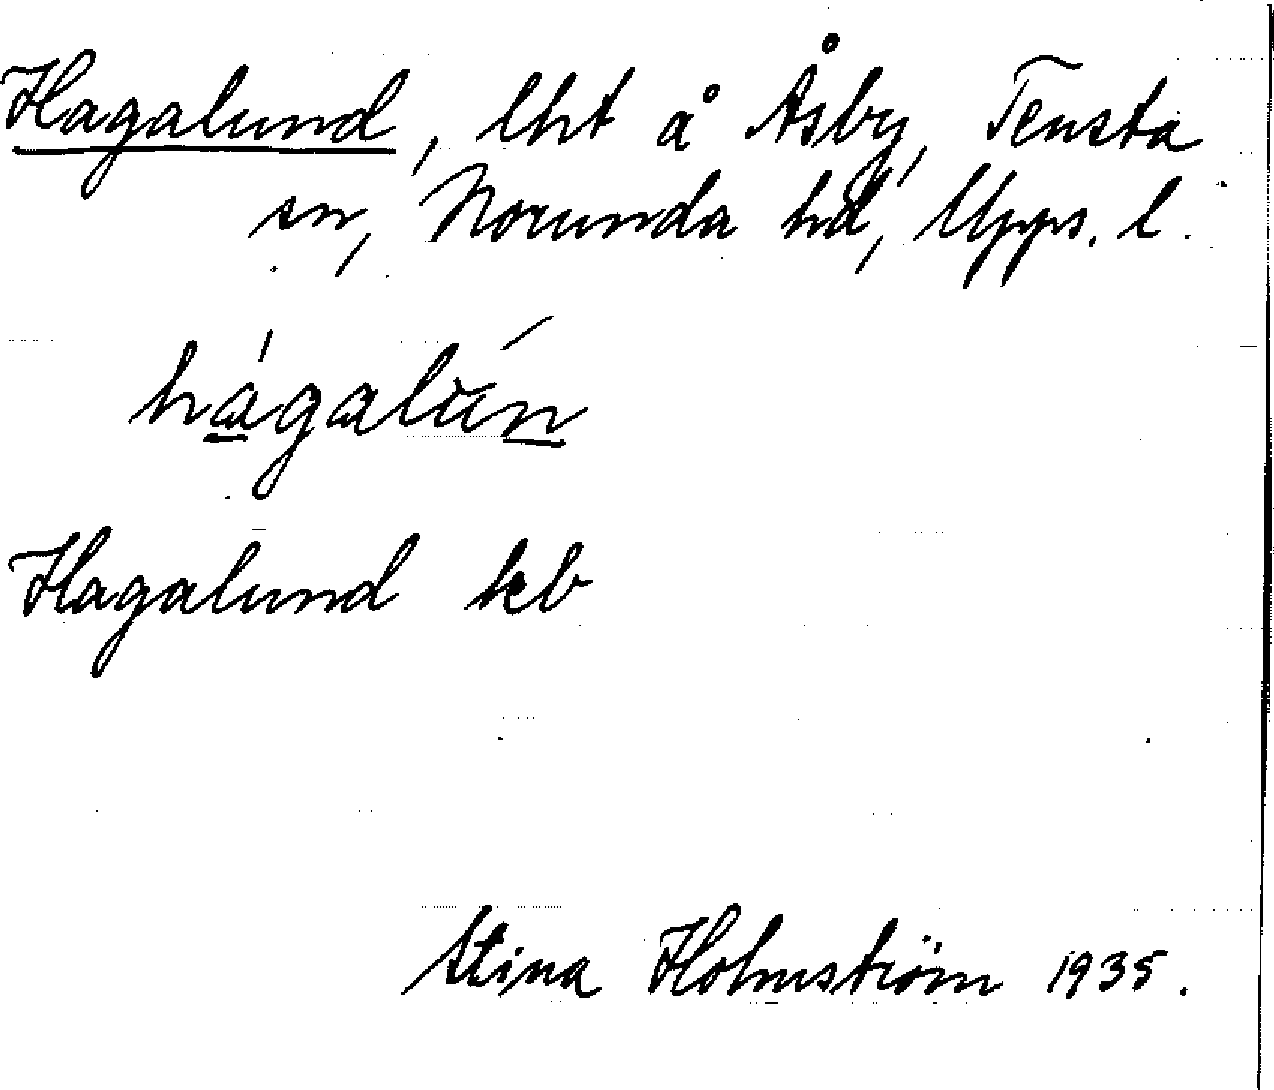 Hagalund, lht å Åsby, Tensta
sn, Norunda hd, Upps. l.
hágalún
Hagalund kb
Stina Holmström 1935.